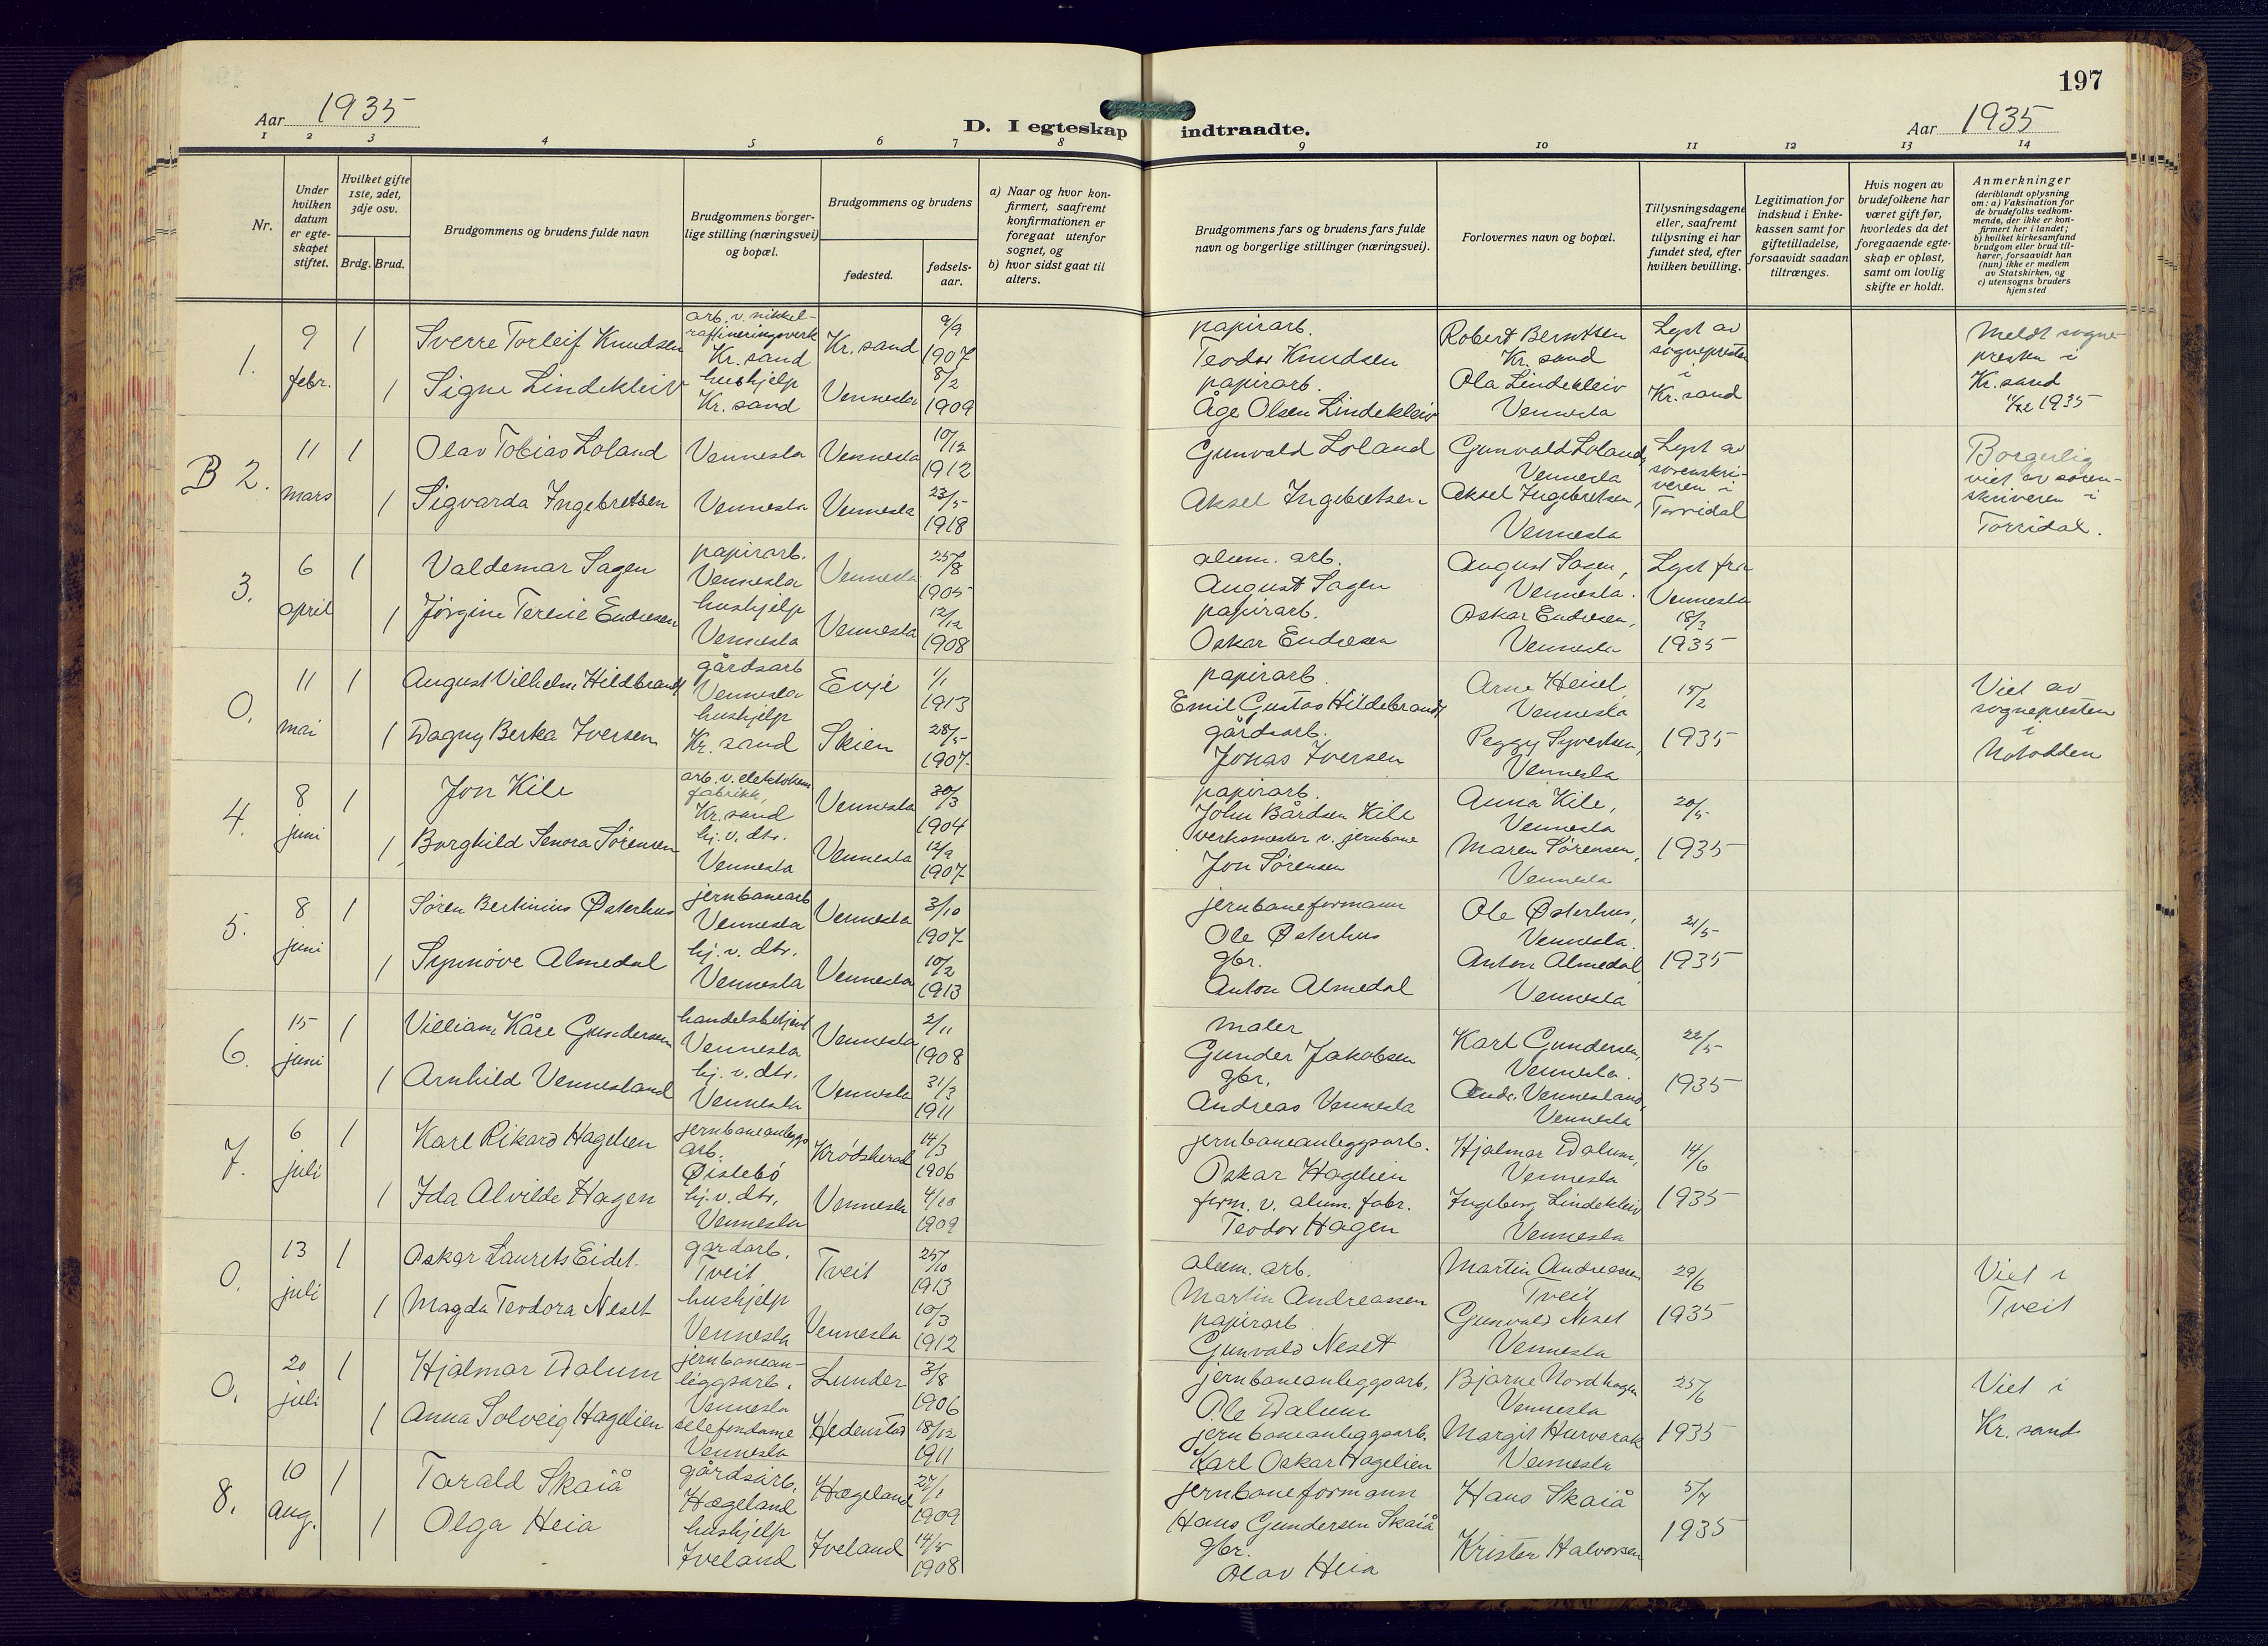 197
Aar 1935
D. I egteskap indtraadte.
Aar 1935
1 2 3 4 5 6 7 8 9 10 11 12 13 14
Nr.
Under hvilken datum er egteskapet stiftet.
Hvilket gifte 1ste, 2det, 3dje osv.
Brdg. Brud.
Brudgommens og brudens fulde navn
Brudgommens borgerlige stilling (næringsvei) og bopæl.
Brudgommens og brudens
fødested.
fødselsaar.
a) Naar og hvor konfirmert, saafremt konfirmationen er foregaat utenfor sognet, og
b) hvor sidst gaat til alters.
Brudgommens fars og brudens fars fulde navn og borgerlige stillinger (næringsvei).
Forlovernes navn og bopæl.
Tillysningsdagene eller, saafremt tillysning ei har fundet sted, efter hvilken bevilling.
Legitimation for indskud i Enkekassen samt for giftetilladelse, forsaavidt saadan tiltrænges.
Hvis nogen av brudefolkene har været gift før, hvorledes da det foregaaende egteskap er opløst, samt om lovlig skifte er holdt.
Anmerkninger (deriblandt oplysning om: a) Vaksination for de brudefolks vedkommende, der ikke er konfirmert her i landet; b) hvilket kirkesamfund brudgom eller brud tilhører, forsaavidt han (hun) ikke er medlem av Statskirken, og c) utensogns bruders hjemsted
1. 9 febr. 1 Sverre Torleif Knudsen arb. v. nikkelraffineringsverk Kr. sand Kr. sand 9/9 1907 papirarb. Teodor Knudsen Robert Berntsen Kr. sand Lyst av sognepresten i Kr. sand Meldt sognepresten i Kr. sand 11/2 1935
1 Signe Lindekleiv hushjelp Kr. sand Vennesla 8/2 1909 papirarb. Åge Olsen Lindekleiv Ola Lindekleiv Vennesla
B 2. 11 mars 1 Olav Tobias Loland Vennesla Vennesla 10/12 1912 Gunvald Loland Gunvald Loland, Vennesla Lyst av sorenskriveren i Torridal Borgerlig viet av sorenskriveren i Torridal.
1 Sigvarda Ingebretsen Vennesla Vennesla 23/5 1918 Aksel Ingebretsen Aksel Ingebretsen, Vennesla
3. 6 april 1 Valdemar Sagen papirarb. Vennesla Vennesla 25/8 1905 alum. arb. August Sagen August Sagen, Vennesla. Lyst fra Vennesla 18/3 1935
1 Jørgine Terene Endresen hushjelp Vennesla Vennesla 12/12 1908 papirarb. Oskar Endresen Oskar Endresen, Vennesla
0. 11 mai 1 August Vilhelm Hildbrandt gårdsarb Vennesla Evje 1/1 1913 papirarb. Emil Gustav Hildebrandt Arne Heisel, Vennesla 15/2 1935 Viet av sognepresten i Notodden
1 Dagny Berta Iversen hushjelp Kr. sand Skien 28/5 1907 gårdsarb. Jonas Iversen Peggy Syvertsen, Vennesla
4. 8 juni 1 Jon Kile arb. v. elektrokem fabrikk, Kr. sand Vennesla 30/3 1904 papirarb. John Bårdsen Kile Anna Kile, Vennesla 20/5 1935
1 Borghild Senora Sørensen hj. v. dtr. Vennesla Vennesla 12/9 1907 verksmester v. jernbane Jon Sørensen Maren Sørensen, Vennesla
5. 8 juni 1 Søren Bertinius Østerhus jernbanearb Vennesla Vennesla 3/10 1907 jernbaneformann Ole Østerhus Ole Østerhus, Vennesla. 21/5 1935
1 Synnøve Almedal hj. v. dtr. Vennesla Vennesla 10/2 1913 gbr. Anton Almedal Anton Almedal, Vennesla
6. 15 juni 1 Villiam Kåre Gundersen handelsbetjent Vennesla Vennesla 2/11 1908 maler Gunder Jakobsen Karl Gundersen, Vennesla. 22/5 1935
1 Arnhild Vennesland hj. v. dtr. Vennesla Vennesla 31/3 1911 gbr. Andreas Vennesla Andr. Vennesland, Vennesla
7. 6 juli 1 Karl Rikard Hagelien jernbaneanleggsarb. Øislebö Krødsherad 14/3 1906 jernbaneanleggsarb. Oskar Hagelien Hjalmar Dalum, Vennesla 14/6 1935
1 Ida Alvilde Hagen hj. v. dtr, Vennesla Vennesla 4/10 1909 form. v. alum. fabr. Teodor Hagen Ingeborg Lindekleiv Vennesla
0. 13 juli 1 Oskar Laurets Eidet gardarb. Tveit Tveit 25/10 1913 alum. arb. Martin Andreassen Martin Andreassen Tveit 29/6 1935 Viet i Tveit
1 Magda Teodora Neset hushjelp Vennesla Vennesla 10/3 1912 papirarb. Gunvald Neset Gunvald Neset Vennesla
0. 20 juli 1 Hjalmar Dalum jernbaneanleggsarb. Vennesla Lunder 3/8 1906 jernbaneanleggsarb. Ole Dalum Bjarne Nordhagen Vennesla 25/6 1935 Viet i Kr. sand
1 Anna Solveig Hagelien telefondame Vennesla Hedenstad 18/12 1911 jernbaneanleggsarb. Karl Oskar Hagelien Margit Hurverak Vennesla
8. 10 aug. 1 Torald Skaiå gårdsarb. Hægeland Hægeland 27/1 1909 jernbaneformann Hans Gundersen Skaiå Hans Skaiå 5/7 1935
1 Olga Heia hushjelp Iveland Iveland 14/5 1908 gbr. Olav Heia Krister Halvorsen